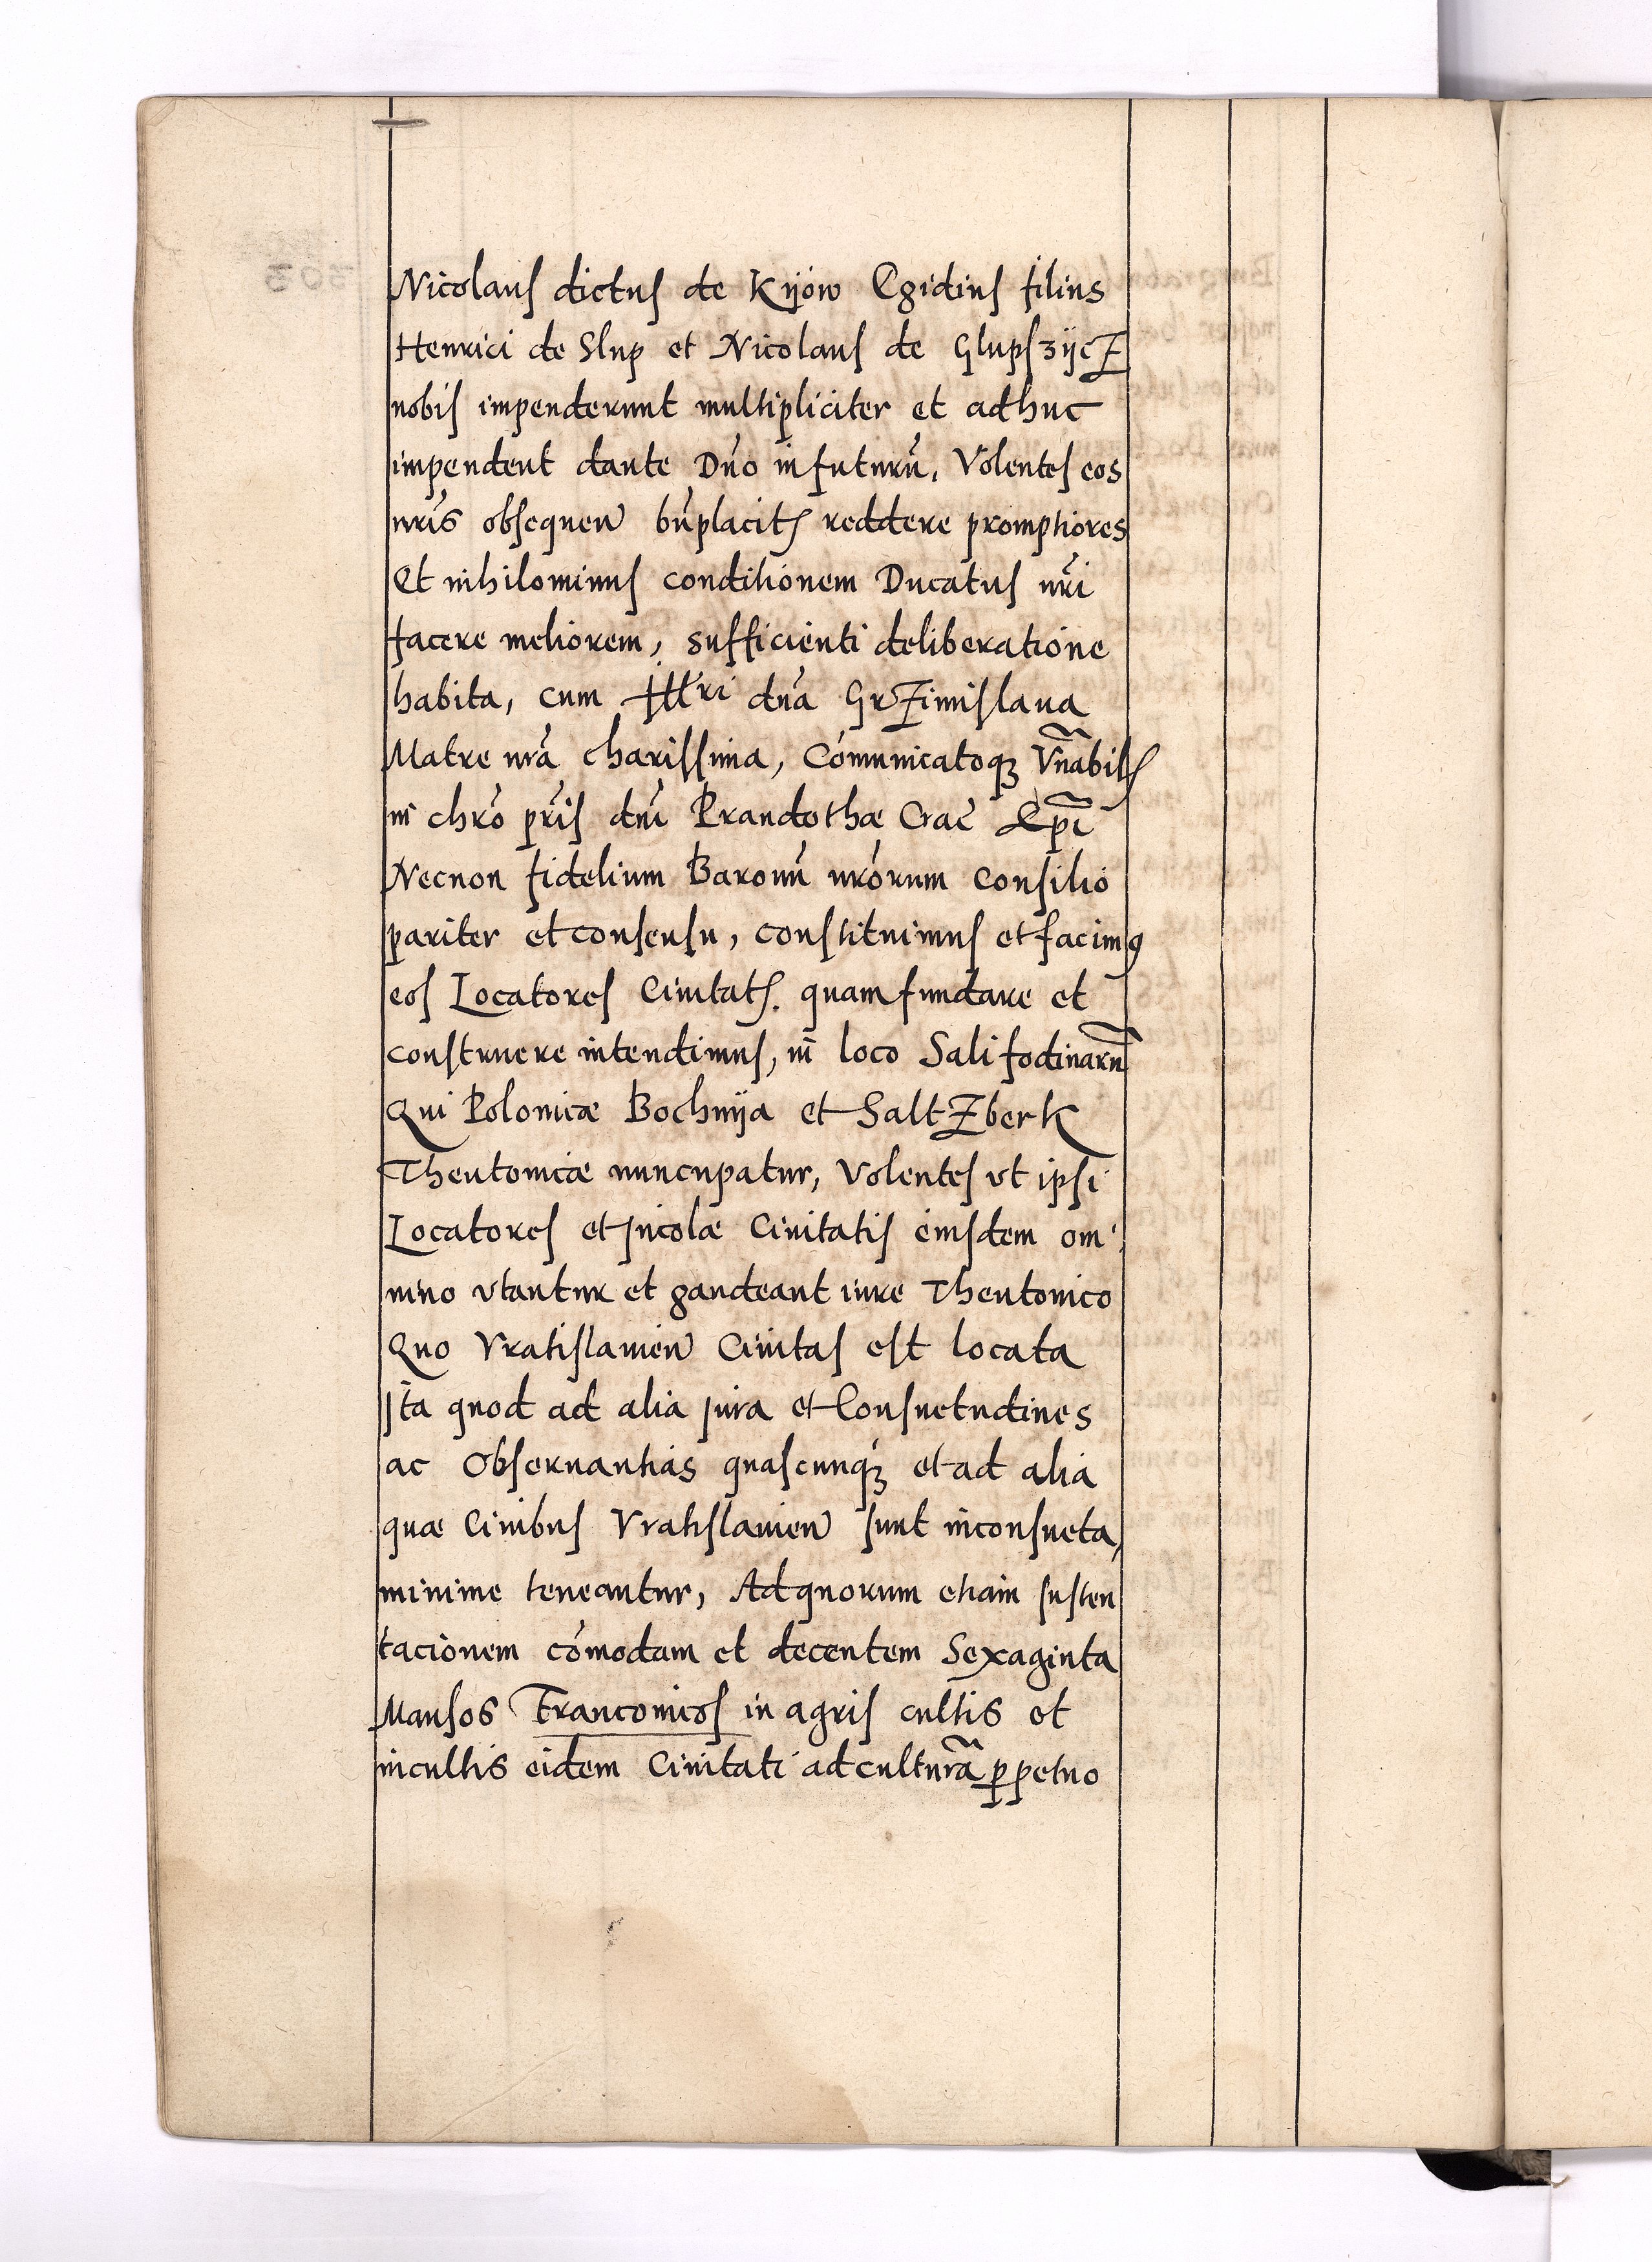 Nicolaus dictus de Kijow Egidius filius
Henrici de Slup et Nicolaus de Glupszijcz
nobis impenderunt multipliciter et adhuc
impendent dante Dn̄o in futurū. Volentes eos
nr̄is obsequen̄ bn̄placitis reddere promptiores
Et nihilominus conditionem Ducatus nr̄i
facere meliorem, sufficienti deliberatione
habita, cum Illri dn̄a Grzimislaua
Matre nr̄a charissima, Cōmunicatoq̨ Vn̄abilis
in chr̄o pr̄is dn̄i Prandothæ Crac̄ Ep̄i
Necnon fidelium Baronū nr̄orum Consilio
pariter et consensu, constituimus et facimꝰ
eos Locatores Ciuitatis. quam fundare et
construere intendimus, in loco Salifodinarū
Qui Polonicæ Bochnija et Saltzberk
Theutonicæ nuncupatur, Volentes vt ipsi
Locatores et Incolæ Ciuitatis eiusdem om
nino vtantur et gaudeant iure Theutonico
Quo Vratislauien̄ Ciuitas est locata
Ita quod ad alia jura et Consuetudines
ac Obseruantias quascunq̨ et ad alia
quæ Ciuibus Vratislauien̄ sunt inconsueta,
minime teneantur, Ad quorum etiam susten
tacionem cōmodam et decentem Sexaginta
Mansos Franconicos in agris cultis et
incultis eidem Ciuitati ad culturā ꝑpetuo